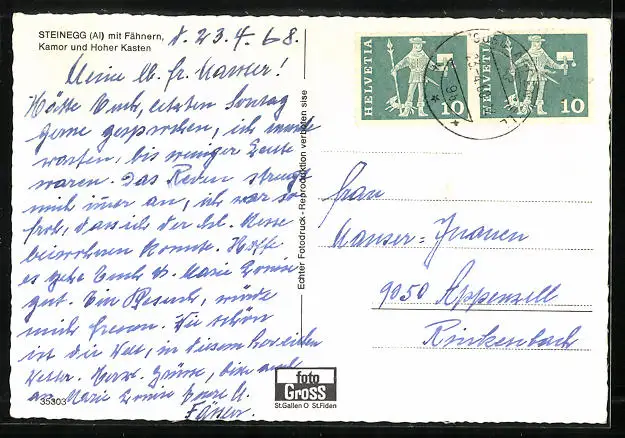 STEINEGG (AI) mit Fähnern,
Kamor und Hoher Kasten
23.4.68.
Meine lb. Fr. Manser!
Hätte Euch, letzten Sonntag
gerne gesprochen, ich
warten, bis weniger Leute
waren. Das Reden strengt
mich imer an, ich war so
froh, dass ich der hl. Messe
beiwohnen konnte. Hoffe
es gehe Euch u. Marie Louise
gut. Ein Besuch, würde
mich freuen. Wie schön
ist die Welt, in diesem herrlichen
Wetter. Herzl. Grüsse, bitte auch
an Marie Louise
35303
Echter Fotodruck - Reproduktion verboten
foto
Gross
St.Gallen O St.Fiden
HELVETIA 10
HELVETIA 10
Frau
Manser=Inauen
9050 Appenzell
Rinkenbach